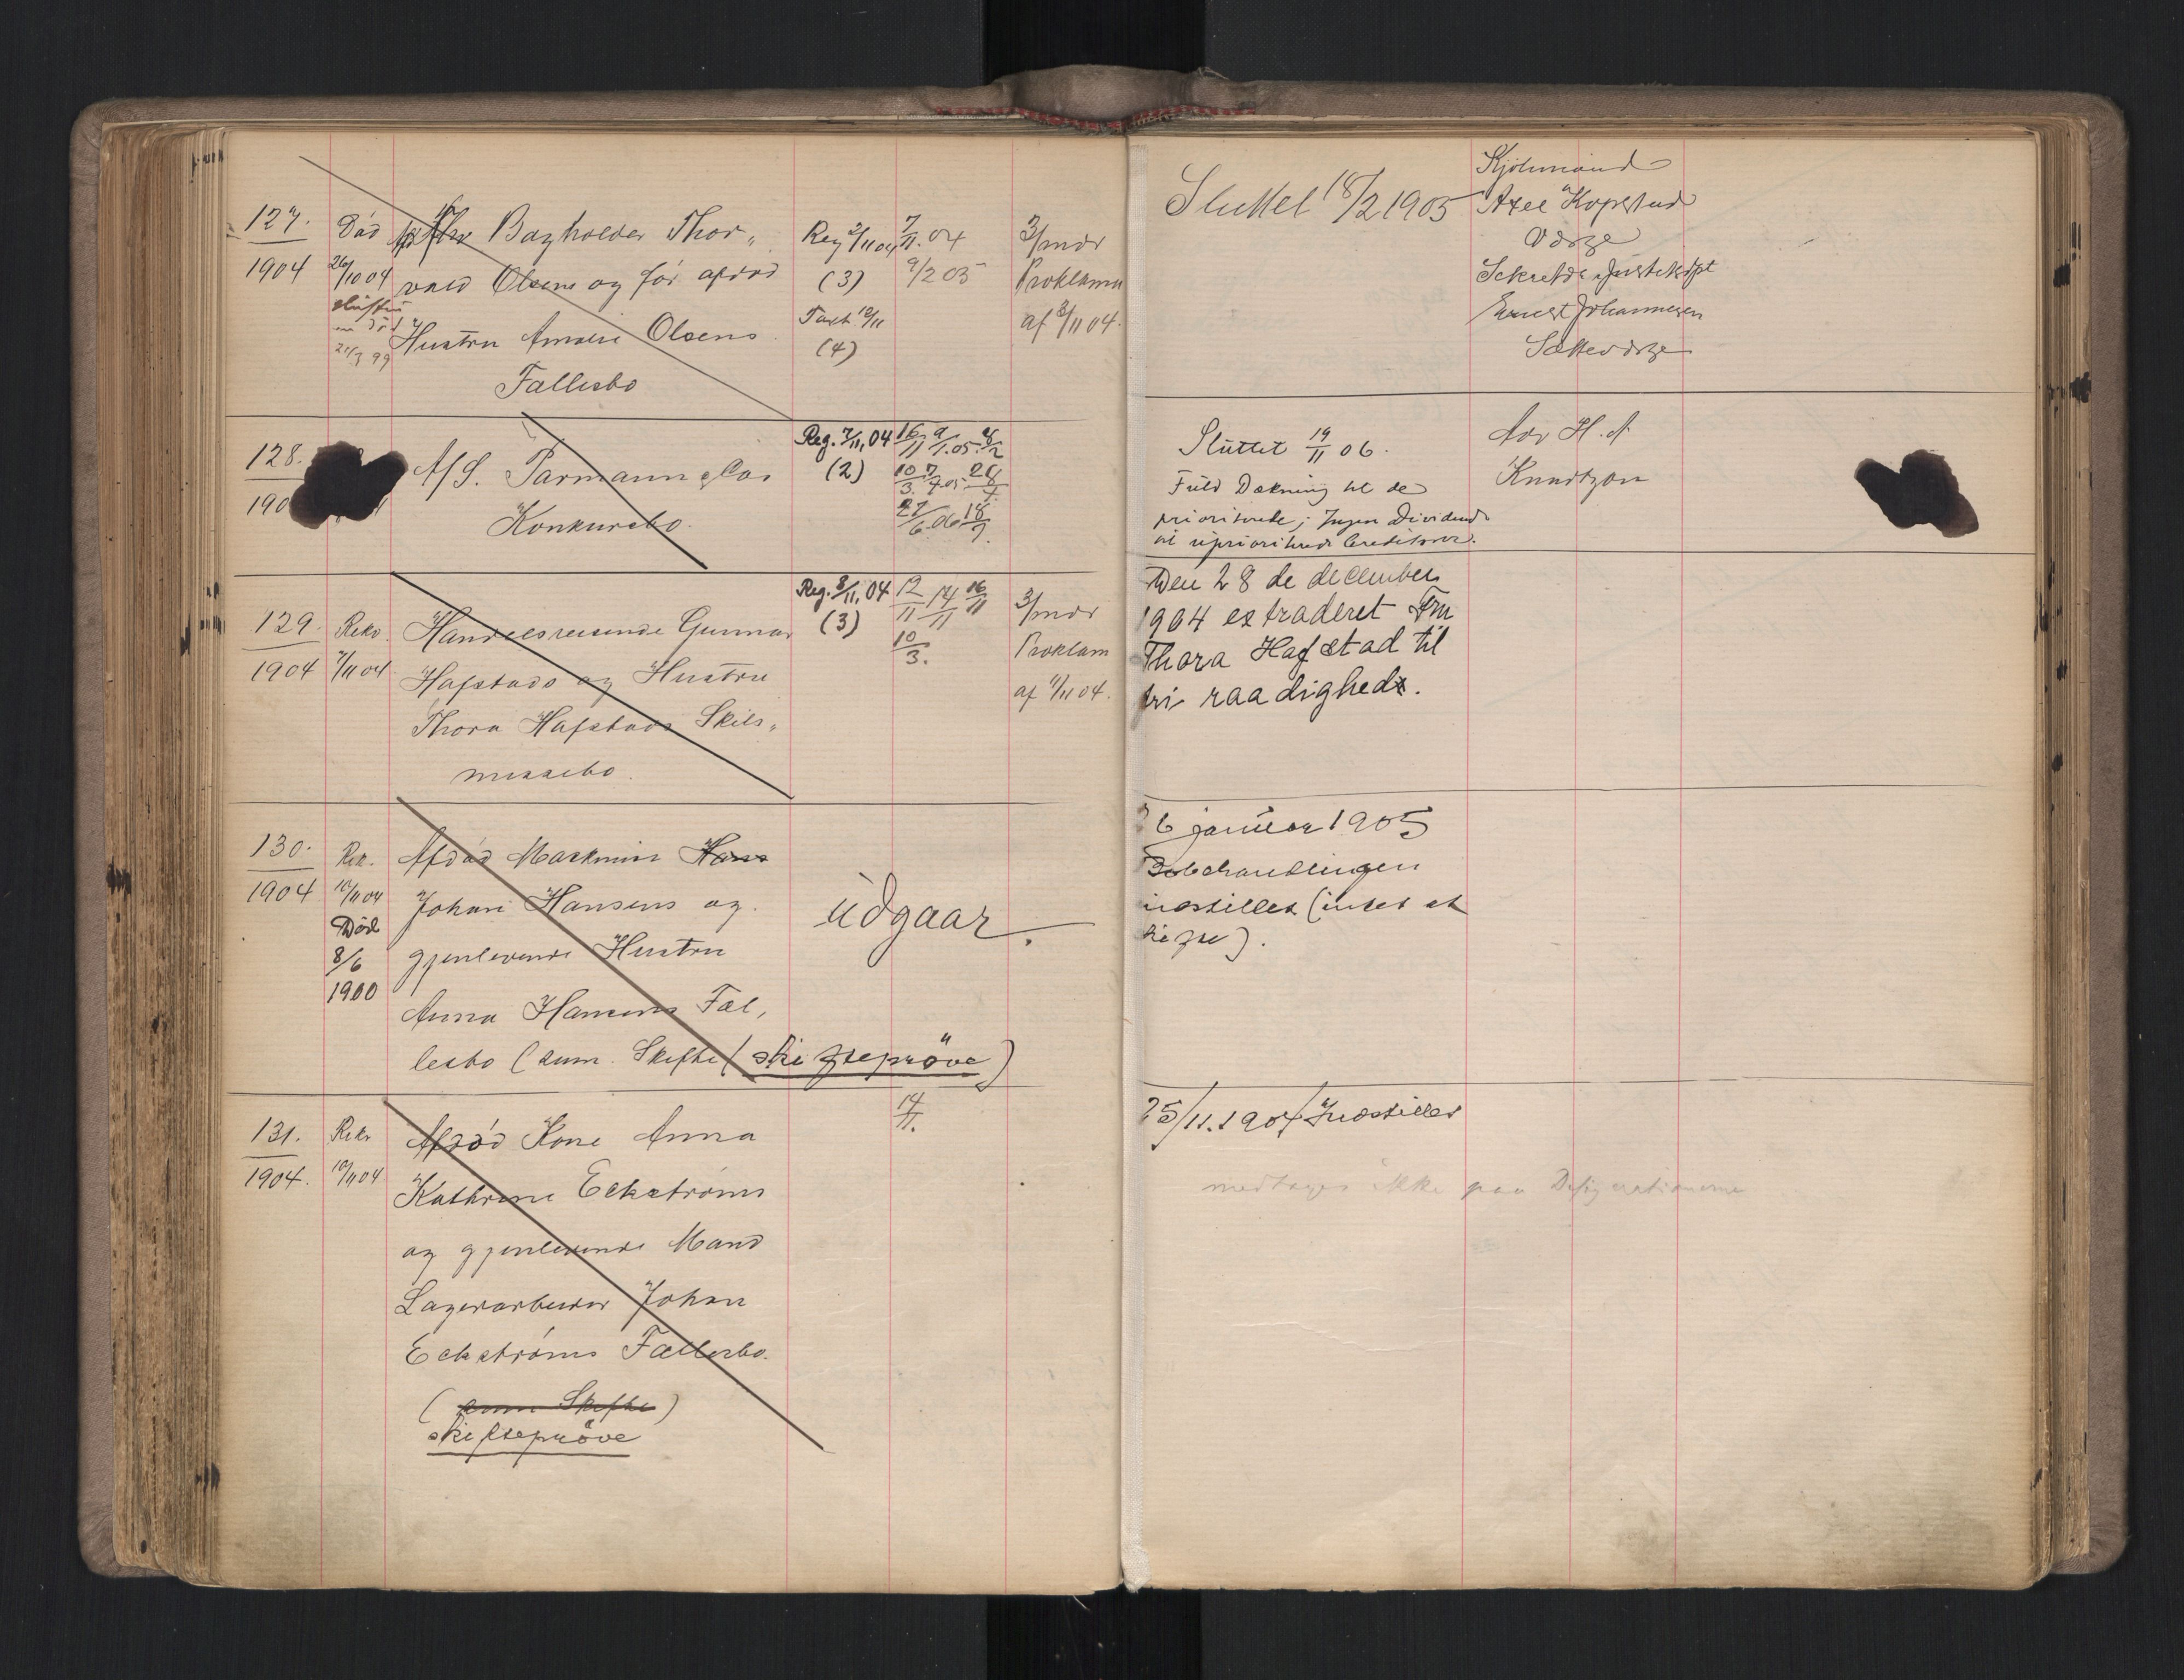 127.
1904
Død
26/10 04
Hustru
en død
21/3 99
Bagholder Thor„
vald Olsens og før afdød
Hustru Amalie Olsens
Fællesbo
Reg 3/11 04
(3)
Taxt. 12/11
(4)
7/11. 04
9/2 05
3/mdr
Proklama
af 3/11 04.
Sluttet 18/2 1905
Kjøbmand
Axel Kopstad
Ernst Johannesen
128.
190
A/S. Parmann & Co's
Konkursbo.
Reg. 7/11, 04
(2)
16/11 9/1.05. 8/2
10/3. 7/4.05 28/4.
27/6.06 18/7.
Sluttet 19/11 06.
Fuld Dækning til de
prioriterede; Ingen Dividende
til uprioriterede Creditorer.
Adv H. A
Knudtzon
129.
1904
Rekv
7/11 04
Handelsreisende Gunnar
Hafstads og Hustru
Thora Hafstads Skils„
missebo.
Reg. 8/11, 04
(3)
12/11 14/11 16/11
10/3.
3/mdr
Proklam
af 11/11 04.
Den 28 de december
1904 extraderet Fru
Thora Hafstad til
fri raadighed.
130.
1904
Rek.
10/11 04
Død
8/6
1900
Afdød Maskinist Hans
Johan Hansens og
gjenlevende Hustru
Anna Hansens Fæl,
lesbo (sum. Skifte (skifteprøve)
udgaar.
26 januar 1905
Bobehandlingen
indstilles (intet at
skifte).
131.
1904.
Rekv
10/11 04
Afdød Kone Anna
Kathrine Eckstrøms
og gjenlevende Mand
Lagerarbeider Johan
Eckstrøms Fællesbo.
(sum Skifte)
skifteprøve
14/11.
25/11.1904 Indstilles
medtages ikke paa Designationerne